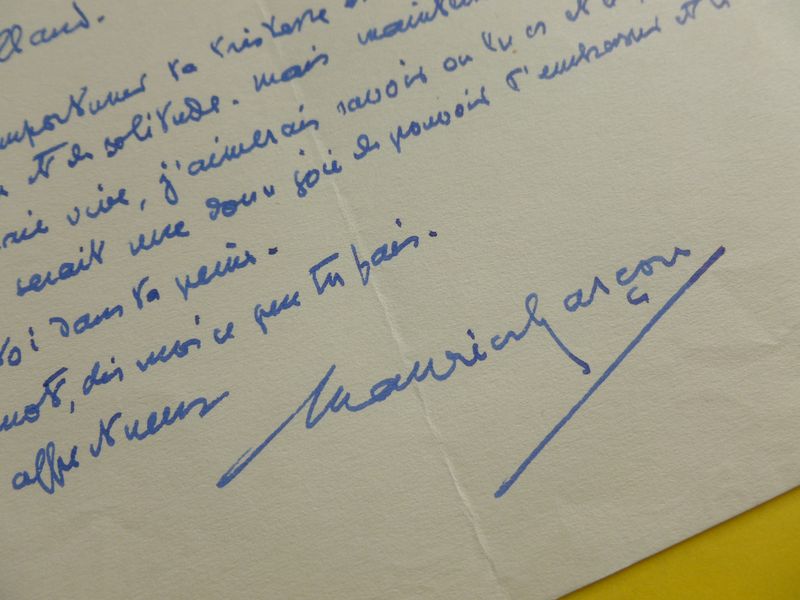 importuner ta tristesse
et de solitude. mais
vive, j'aimerais savoir où tu es et
serait une douce joie de pouvoir t'embrasser et
toi dans ta peine.
mot, dis moi ce que tu fais.
affectueux
Maurice Garçon